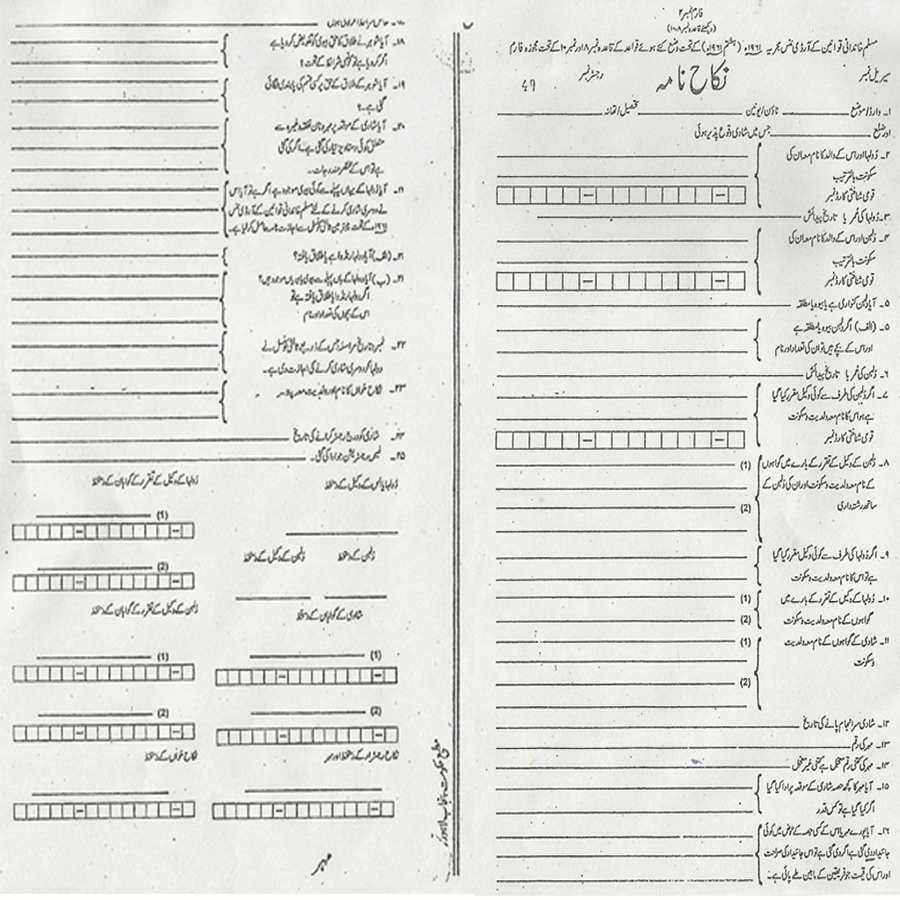 فارم نمبر ۲
(دیکھئے قاعدہ نمبر ۸-۱۰)
مسلم خاندانی قوانین کے آرڈی ننس مجریہ ۱۹۶۱ء (ہشتم ۱۹۶۱ء) کے تحت وضع کئے ہوئے قواعد کے قاعدہ نمبر ۸ اور نمبر ۱۰ کے تحت مجوزہ فارم
سیریل نمبر نکاح نامہ رجسٹر نمبر 49
۱۔ وارڈ/موضع ٹاؤن/یونین تحصیل/تھانہ
اور ضلع جس میں شادی وقوع پذیر ہوئی
۲۔ دولہا اور اس کے والد کا نام معہ ان کی
سکونت بالترتیب
قومی شناختی کارڈ نمبر
۳۔ دولہا کی عمر یا تاریخ پیدائش
۴۔ دلہن اور اس کے والد کا نام معہ ان کی
سکونت بالترتیب
قومی شناختی کارڈ نمبر
۵۔ آیا دلہن کنواری ہے یا بیوہ یا مطلقہ
۵۔ (الف) اگر دلہن بیوہ یا مطلقہ ہے
اور اس کے بچے ہیں تو ان کی تعداد اور نام
۶۔ دلہن کی عمر یا تاریخ پیدائش
۷۔ اگر دلہن کی طرف سے کوئی وکیل مقرر کیا گیا
ہے تو اس کا نام معہ ولدیت و سکونت
قومی شناختی کارڈ نمبر
۸۔ دلہن کے وکیل کے تقرر کے بارے میں گواہوں (1)
کے نام معہ ولدیت و سکونت اور ان کی دلہن کے
ساتھ رشتہ داری (2)
۹۔ اگر دولہا کی طرف سے کوئی وکیل مقرر کیا گیا
ہے تو اس کا نام معہ ولدیت و سکونت
۱۰۔ دولہا کے وکیل کے تقرر کے بارے میں (1)
گواہوں کے نام معہ ولدیت و سکونت (2)
۱۱۔ شادی کے گواہوں کے نام معہ ولدیت (1)
و سکونت
(2)
۱۲۔ شادی سرانجام پانے کی تاریخ
۱۳۔ مہر کی رقم
۱۴۔ مہر کی کتنی رقم معجل ہے کتنی غیر معجل
۱۵۔ آیا مہر کا کچھ حصہ شادی کے موقعہ پر ادا کیا گیا
اگر کیا گیا ہے تو کس قدر
۱۶۔ آیا پورے مہر یا اس کے کسی حصہ کے عوض میں کوئی
جائیداد دی گئی ہے اگر دی گئی ہے تو اس جائیداد کی صراحت
اور اس کی قیمت جو فریقین کے مابین طے پائی ہے۔
۱۷۔ خاص شرائط اگر کوئی ہوں
۱۸۔ آیا شوہر نے طلاق کا حق بیوی کو تفویض کر دیا ہے
اگر کر دیا ہے تو کونسی شرائط کے تحت؟
۱۹۔ آیا شوہر کے طلاق کے حق پر کسی قسم کی پابندی لگائی
گئی ہے۔؟
۲۰۔ آیا شادی کے موقعہ پر مہر و نان نفقہ وغیرہ سے
متعلق کوئی دستاویز تیار کی گئی ہے۔ اگر کی گئی
ہے تو اس کے مختصر مندرجات۔
۲۱۔ آیا دولہا کے یہاں پہلے سے کوئی بیوی موجود ہے اگر ہے تو آیا اس
نے دوسری شادی کرنے کے لئے مسلم خاندانی قوانین کے آرڈی ننس
۱۹۶۱ء کے تحت چیئرمین ثالثی کونسل سے اجازت نامہ حاصل کر لیا ہے۔
۲۱۔ (الف) آیا دولہا رنڈوا ہے یا طلاق یافتہ؟
۲۱۔ (ب) آیا دولہا کے ہاں پہلے سے بیوی/بیویاں موجود ہیں؟
اگر دولہا رنڈوا یا طلاق یافتہ ہے تو
اس کے بچوں کی تعداد اور نام
۲۲۔ نمبر و تاریخ مراسلہ جس کے ذریعہ ثالثی کونسل نے
دولہا کو دوسری شادی کرنے کی اجازت دی ہے۔
۲۳۔ نکاح خواں کا نام اور ولدیت معہ پتہ۔
۲۴۔ شادی کو درج رجسٹر کرانے کی تاریخ
۲۵۔ فیس رجسٹریشن جو ادا کی گئی۔
دولہا یا اس کے وکیل کے دستخط دولہا کے وکیل کے تقرر کے گواہان کے دستخط
(1)
دلہن کے دستخط دلہن کے وکیل کے دستخط
(2)
شادی کے گواہان کے دستخط دلہن کے وکیل کے تقرر کے گواہان کے دستخط
(1) (1)
(2) (2)
نکاح رجسٹرار کے دستخط اور مہر نکاح خواں کے دستخط
مہر
مطبع حکومت پنجاب لاہور